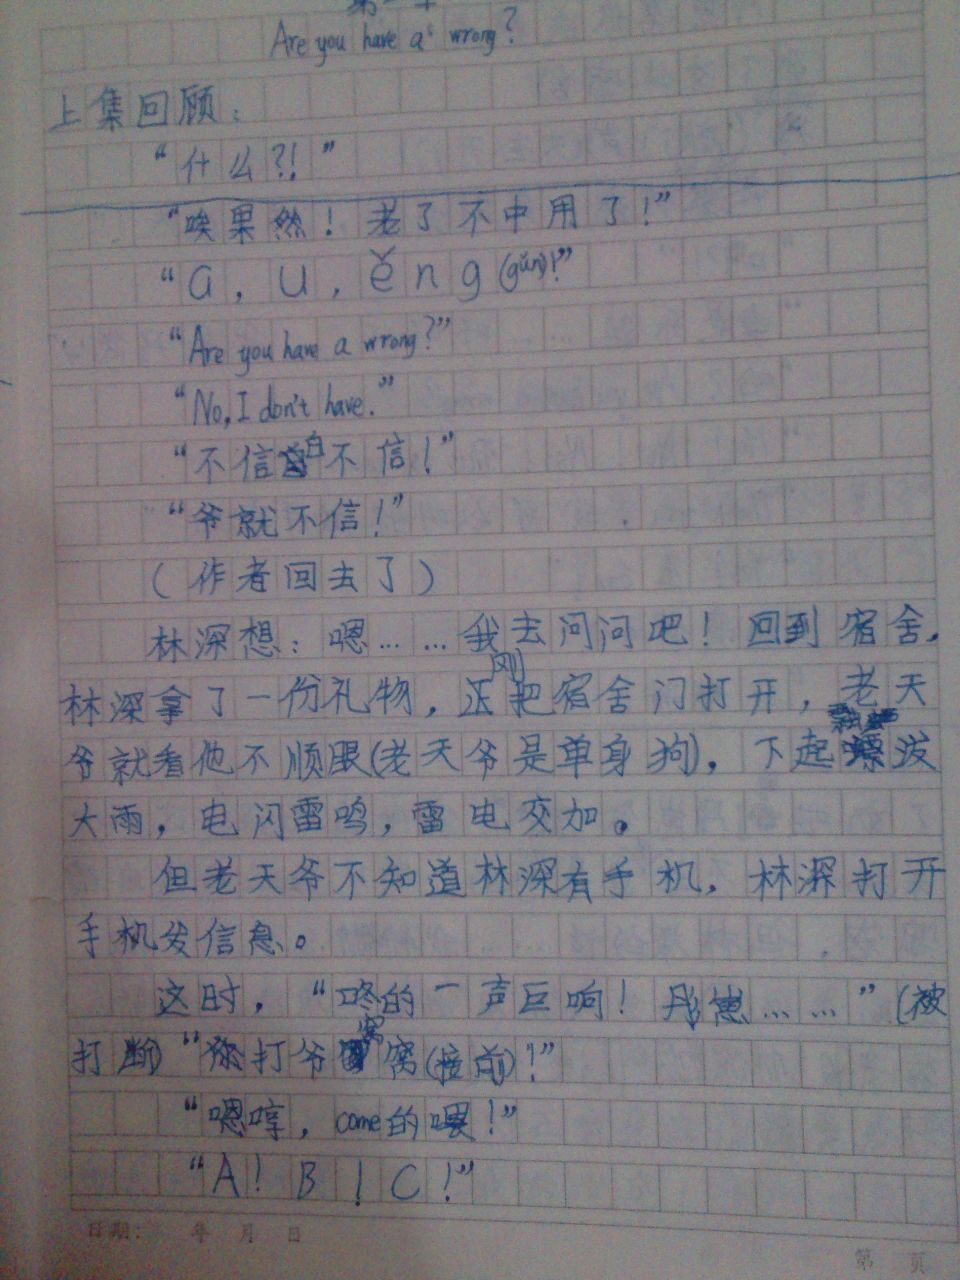 Are you have a wrong?
上集回顾：
“什么?!”
“唉果然！老了不中用了！”
“a，u，ěng(gǔn)!”
“Are you have a wrong?”
“No, I don't have.”
“不信白不信！”
“爷就不信！”
（作者回去了）
林深想：嗯……我去问问吧！回到宿舍，
林深拿了一份礼物，正刚把宿舍门打开，老天
爷就看他不顺眼(老天爷是单身狗)，下起瓢泼
大雨，电闪雷鸣，雷电交加。
但老天爷不知道林深有手机，林深打开
手机发信息。
这时，“咚的一声巨响！……”(被
打断)“打爷窝(接前)!”
“嗯哼，come的喂！”
“A！B！C！”
日期： 年 月 日
第 页